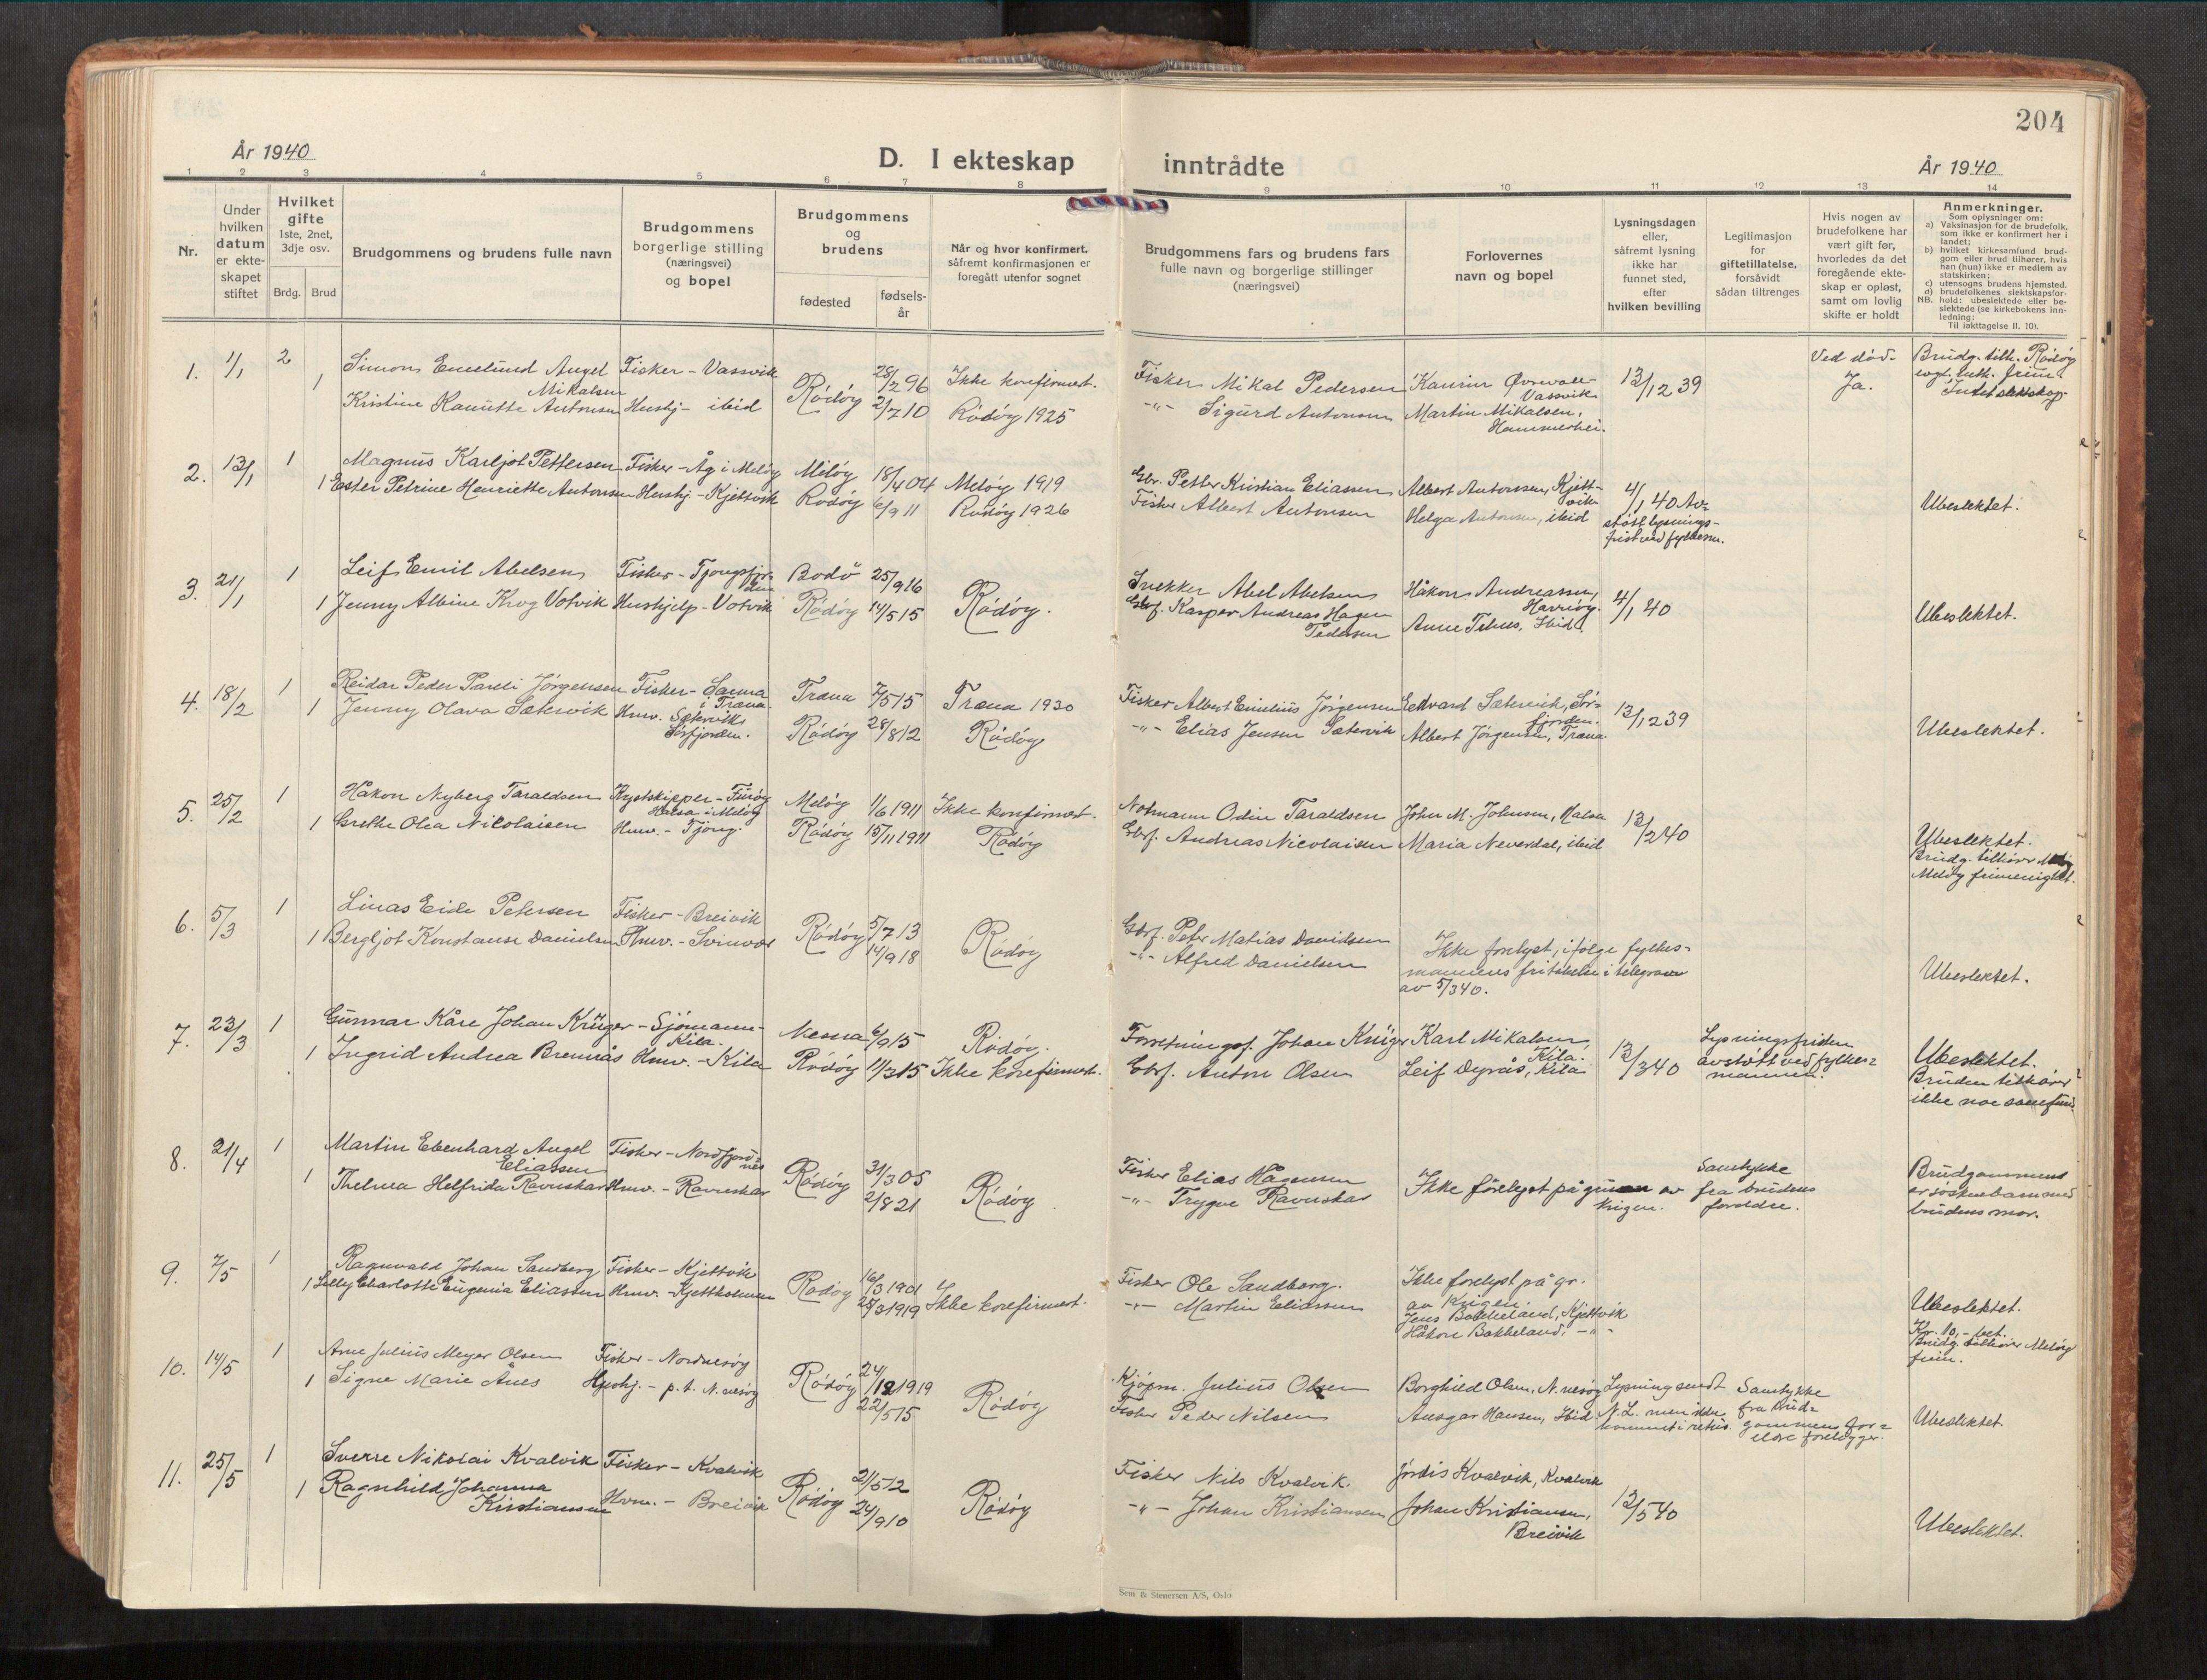 204
År 1940
D. I ekteskap inntrådte
År 1940
1 2 3 4 5 6 7 8 9 10 11 12 13 14
Nr.
Under hvilken datum er ekte-skapet stiftet
Hvilket gifte 1ste, 2net, 3dje osv.
Brdg. Brud
Brudgommens og brudens fulle navn
Brudgommens borgerlige stilling (næringsvei) og bopel
Brudgommens og brudens
fødested
fødsels-år
Når og hvor konfirmert, såfremt konfirmasjonen er foregått utenfor sognet
Brudgommens fars og brudens fars fulle navn og borgerlige stillinger (næringsvei)
Forlovernes navn og bopel
Lysningsdagen eller, såfremt lysning ikke har funnet sted, efter hvilken bevilling
Legitimasjon for giftetillatelse, forsåvidt sådan tiltrenges
Hvis nogen av brudefolkene har vært gift før, hvorledes da det foregående ekte-skap er opløst, samt om lovlig skifte er holdt
Anmerkninger.
Som oplysninger om:
a) Vaksinasjon for de brudefolk, som ikke er konfirmert her i landet;
b) hvilket kirkesamfund brud-gom eller brud tilhører, hvis han (hun) ikke er medlem av statskirken;
c) utensogns brudens hjemsted.
d) brudefolkenes slektskapsfor-hold: ubeslektede eller be-slektede (se kirkebokens inn-ledning:
NB. Til iakttagelse II. 10).
1. 1/1 2 Simon Emelund Angel Mikalsen Fisker - Vassvik Rödöy 28/2 96 Ikke konfirmert. Fisker Mikal Pedersen Vassvik 13/12 39 Ved död. Ja. Brudg. tilh. Rödöy evgl. luth. frim.
1 Kristine Kanutte Antonsen Hushj - ibid 2/7 10 Rödöy 1925 -"- Sigurd Antonsen Martin Mikalsen, Hammerhei.
2. 13/1 1 Magnus Karljot Pettersen Fisker - Åg i Melöy Melöy 18/4 04 Melöy 1919 Gbr. Petter Kristian Eliassen Albert Antonsen, Kjett-vik 4/1 40 Av-stött lysnings-frist ved fylkesm. Ubeslektet.
1 Ester Petrine Henriette Antonsen Hushj - Kjettvik Rödöy 6/9 11 Rödöy 1926 Fisker Albert Antonsen Helga Antonsen, ibid
3. 21/1 1 Leif Emil Abelsen Fisker - Tjongsfjor-den Bodö 25/9 16 Snekker Abel Abelsen Håkon Andreassen, Havnöy. 4/1 40 Ubeslektet.
1 Jenny Albine Krog Votvik Hushjelp - Votvik Rödöy 14/5 15 Rödöy. Gbf. Kasper Andreas Hagen Pedersen Ibid.
4. 18/2 1 Reidar Peder Pareli Jörgensen Fisker - Sanna i Træna. Træna 7/5 15 Træna 1930 Fisker Albert Emelius Jörgensen Edvard Sætervik, Sör-fjorden. 13/12 39 Ubeslektet.
1 Jenny Olava Sætervik Hmv. Sætervik Sörfjorden. Rödöy 28/8 12 Rödöy -"- Elias Jensen Sætervik Albert Jörgensen, Træna
5. 25/2 1 Håkon Nyberg Taraldsen Kystskipper - Furöy Halsa i Melöy Melöy 1/6 1911 Ikke konfirmert. Notmann Odin Taraldsen John M. Johnsen, Halsa 13/2 40 Ubeslektet. Brudg. tilhörer Melöy frimenighet.
1 Grethe Olea Nikolaisen Hmv. - Tjong. Rödöy 15/11 1911 Rödöy Gbf. Andreas Nicolaisen Maria Neverdal, ibid
6. 5/3 1 Linas Eide Petersen Fisker - Breivik Rödöy 5/7 13 Rödöy Gbf. Peter Matias Davidsen Ikke forelyst, ifölge fylkes-mannens fritakelse i telegram av 5/3 40. Ubeslektet.
1 Bergljot Konstanse Danielsen Hmv. - Svinvær 14/9 18 -"- Alfred Danielsen
7. 23/3 1 Gunnar Kåre Johan Krüger - Sjömann - Kila. Nesna 6/9 15 Rödöy. Forretningsf. Johan Krüger Karl Mikalsen, Kila. 12/3 40 Lysningsfristen avstött ved fylkes-mannen. Ubeslektet. Bruden tilhörer ikke noe samfund
1 Ingrid Andrea Brennås Hmv. - Kila Rödöy 11/3 15 Ikke konfirmert. Gbf. Anton Olsen Leif Dyrås, Kila
8. 21/4 1 Martin Ebenhard Angel Eliassen Fisker - Nordfjord-nes Rödöy 31/3 05 Rödöy Fisker Elias Hågensen Ikke forelyst på grunn av krigen. Samtykke fra brudens foreldre. Brudgommens er söskenbarn med brudens mor.
1 Thelma Helfrida Ravnskar Hmv. - Ravnskar 2/8 21 -"- Trygve Ravnskar
9. 7/5 1 Ragnvald Johan Sandberg Fisker - Kjettvik Rödöy 16/3 1901 Ikke konfirmert. Fisker Ole Sandberg. Ikke forelyst på gr. av krigen. Ubeslektet. Kr. 10,- bet. Brudg. tilhörer Melöy frim.
1 Lilly Charlotte Eugenia Eliassen Hmv. - Kjettholmen 25/3 1919 -"- Martin Eliassen Jens Bakkeland, Kjettvik Håkon Bakkeland, -"-
10. 14/5 1 Arne Julius Meyer Olsen Fisker - Nordnesöy Rödöy 24/12 1919 Rödöy Kjöpm. Julius Olsen Borghild Olsen, N. nesöy Lysning sendt N.L. men ikke kommet i retur. Samtykke fra brud-gommens for-eldre foreligger. Ubeslektet.
1 Signe Marie Ånes Hushj. - p.t. N. nesöy 22/5 15 Fisker Peder Nilsen Ansgar Hansen, Ibid
11. 25/5 1 Sverre Nikolai Kvalvik Fisker - Kvalvik Rödöy 21/5 12 Rödöy Fisker Nils Kvalvik. Jordis Kvalvik, Kvalvik 12/5 40 Ubeslektet.
1 Ragnhild Johanna Kristiansen Hvm. - Breivik 24/9 10 -"- Johan Kristiansen Johan Kristiansen, Breivik
Sem & Stenersen A/S, Oslo